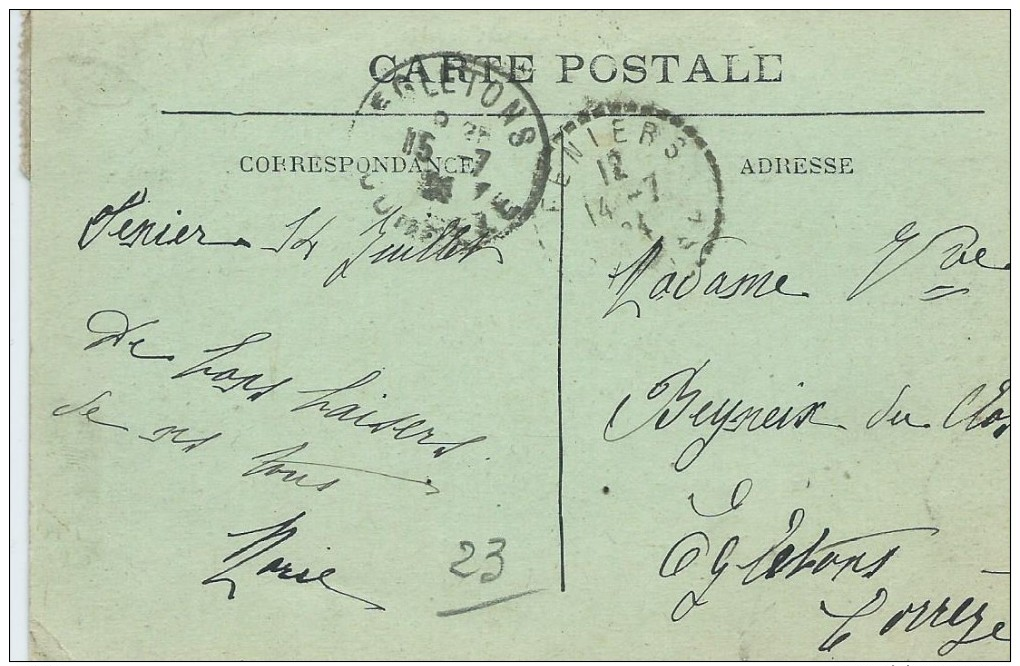 CARTE POSTALE
CORRESPONDANCE
ADRESSE
EGLETONS
15 -7
CORREZE
FENIERS
12
14 -7
24
Fénier 14 Juillet
De bons baisers
de ns tous
Marie
23
Madame Vve
Beyneix du Clos
Egletons
Corrèze